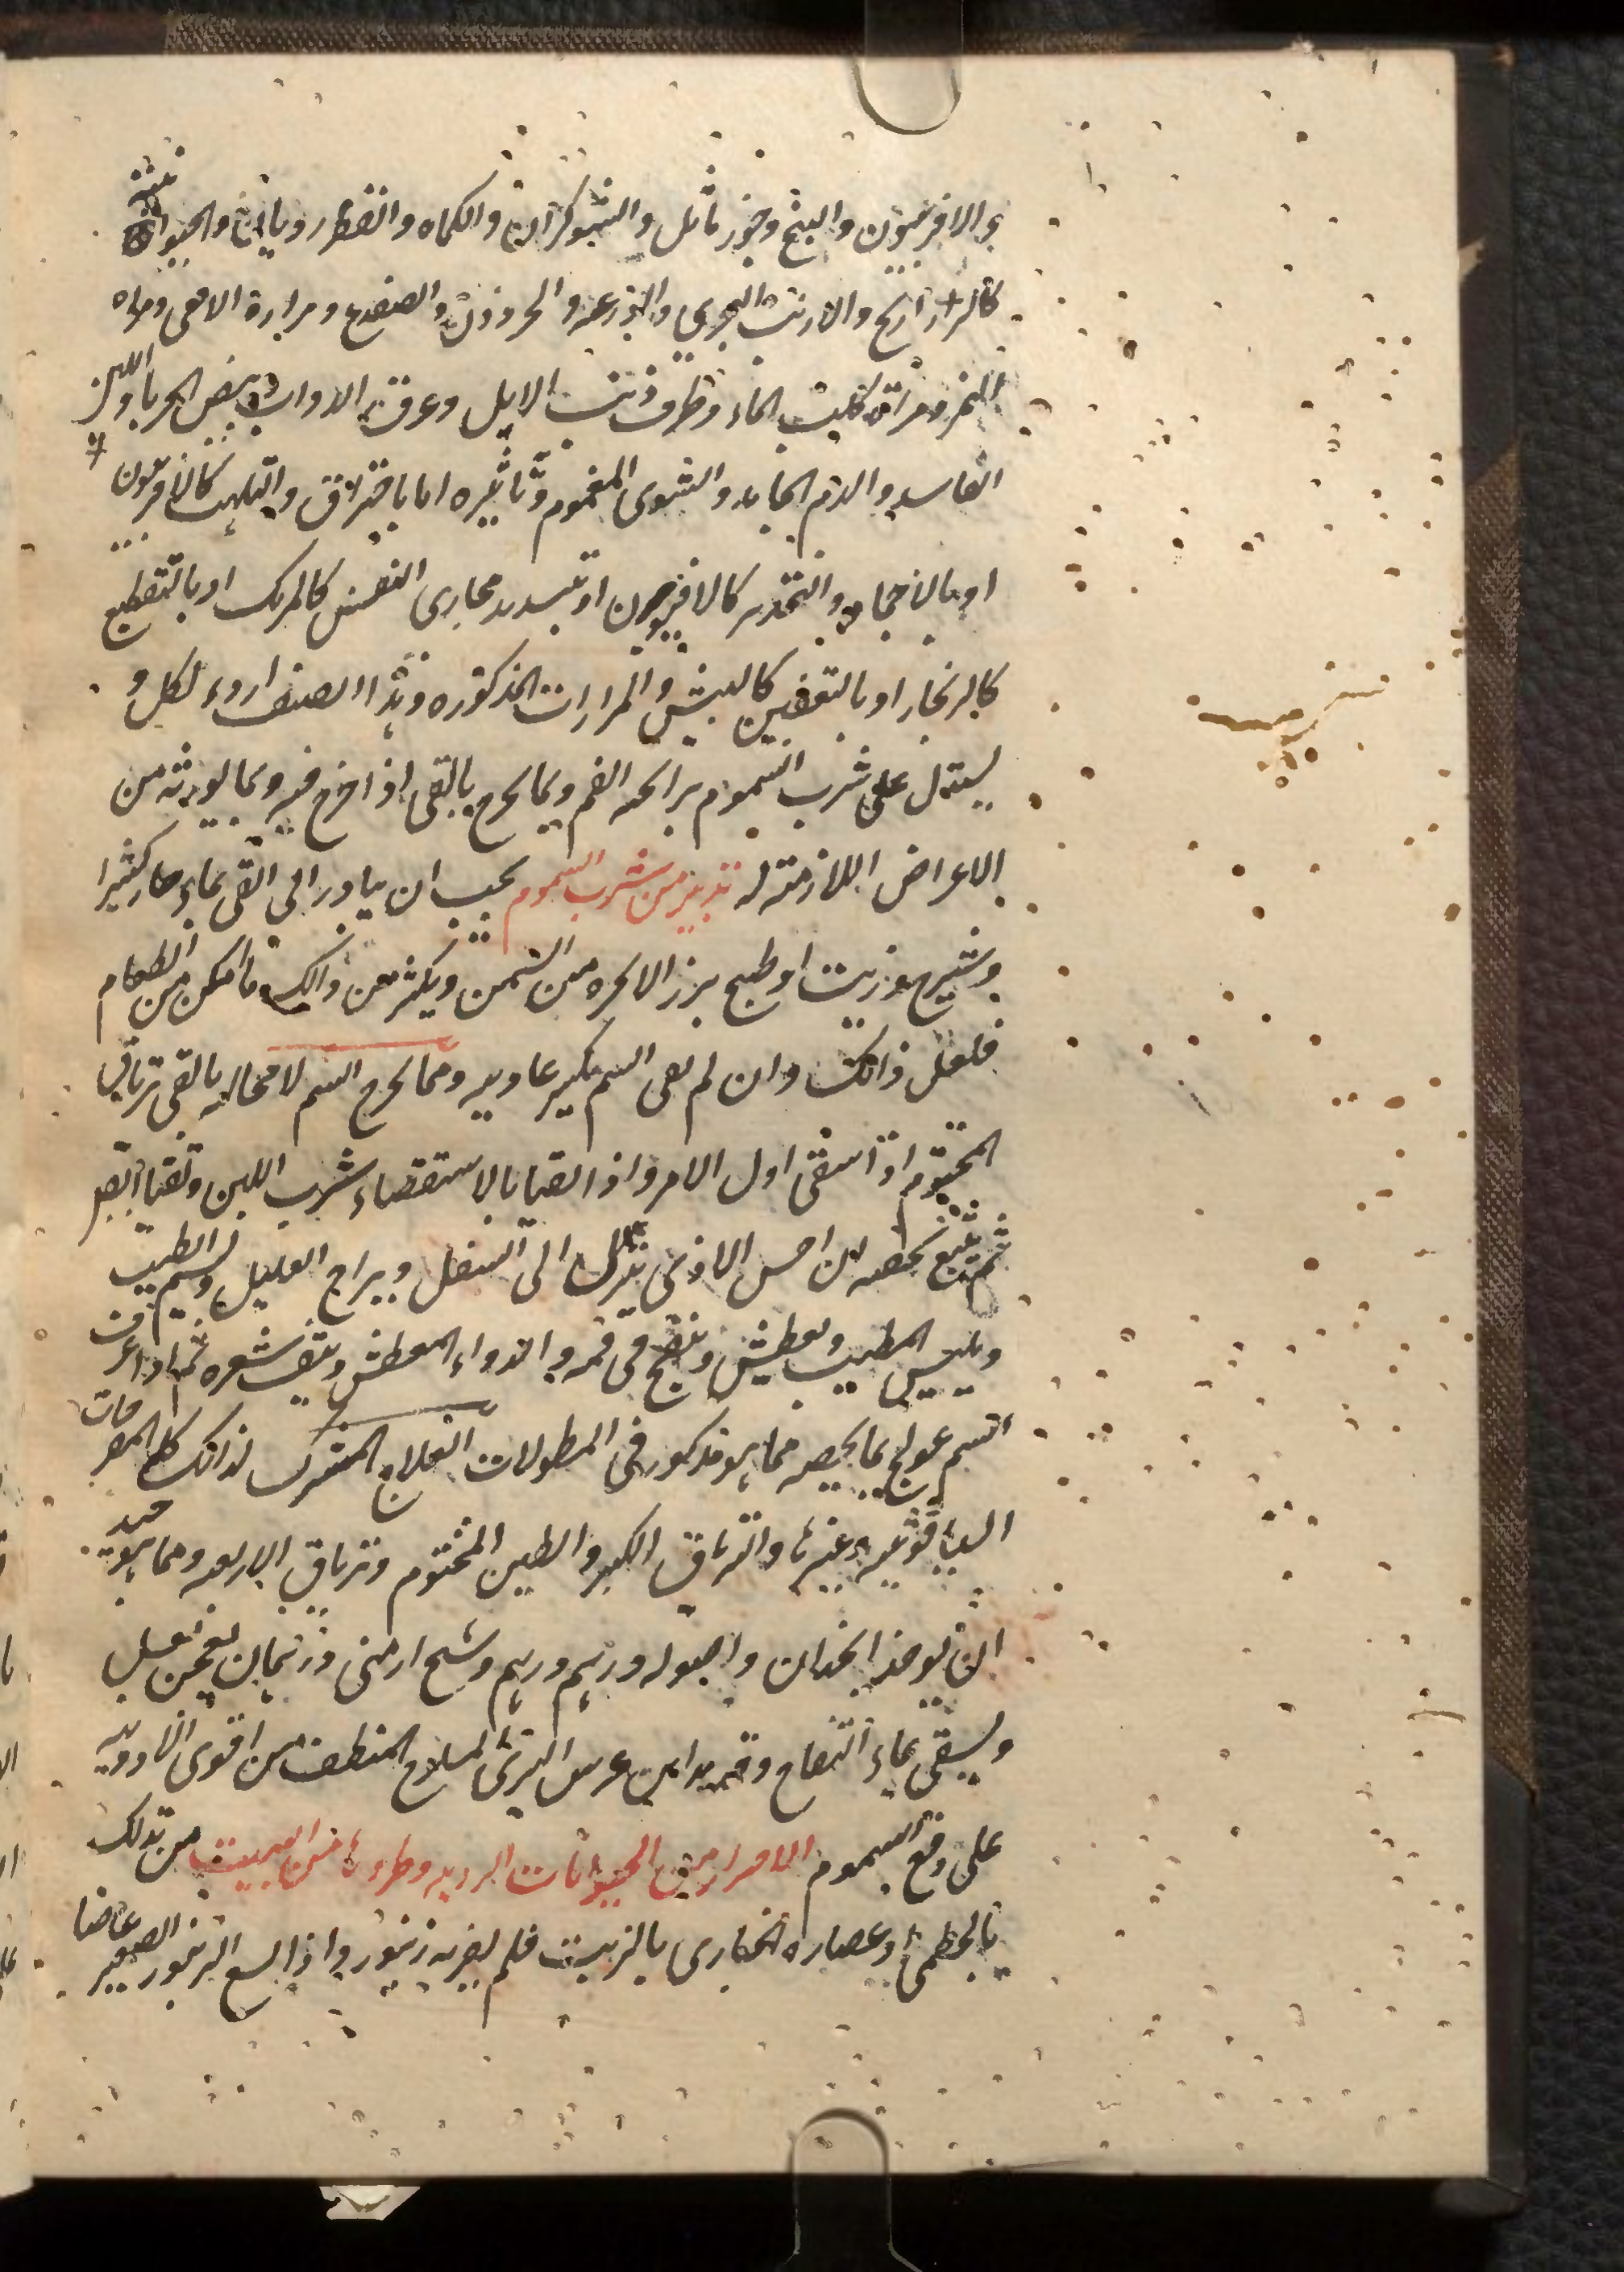 و الافربيون والبنج وجوز ماثل والشوكران والكماه والفطر ردياين والحيوانية
كالذراريح والارنب البحري والوزغة والحرذون والضفدع ومرارة الافعى ومراره
النمر ومرارة كلب الماء وطرف ذنب الايل وعرق الدواب وبيض الحربا واللبن
الفاسد والدم الجامد والشوى المغموم وتاثيره اما باحتراق والتلهب كالافربيون
او بالاجماد والتخدير كالافيون او تسديد مجارى النفس كالمرتك او بالتقطيع
كالزنجار او بالتعفين كالبيش والمرارات المذكوره وهذا الصنف اردء لكل و
يستدل على شرب السموم برائحة الفم وبما يخرج بالقى اذا اخرج فيه وبما يورثه من
الاعراض اللازمة له تدبير من شرب السموم يجب ان يبادر الى القى بماء حار كثيرا
وشيرج وزيت او طبيخ بزر الانجره من السمن ويكثر من ذالك ما امكن من الطعام
فلعل ذالك وان لم يقى السم يكسر عاديته ومما يخرج السم لا محاله بالقى ترياق
المختوم اذا سقى اول الامر واذا تقيا بالاستقصاء شرب اللبن وتقيا
ثم تتبع بحقنه ان احس الاذى نزل الى السفل ويراح العليل ويشم الطيب
ويلبس المطيب ويعطش وينفخ فى فمه والدواء المعطش وينتف شعره ثم اذا عرف
السم عولج بما يخصه مما هو مذكور فى المطولات العلاج المشترك لذالك كله المفرحات
الياقوتيه وغيرها والترياق الكبير والطين المختوم وترياق الاربعه ومما هو جيد
ان يوخذ انجدان واصوله درهم درهم وشيح ارمنى درهمان يعجن بعسل
ويسقى بماء التفاح وقديد ابن عرس البرى المسلوخ المنظف من اقوى الادويه
على دفع السموم الاحتراز من الحيوانات الرديه وطردها من البيت من تدلك
بالخطمى او عصاره الخبازى بالزيت فلم يضر به زنبور واذا لسع الزنبور الصغير عاضا